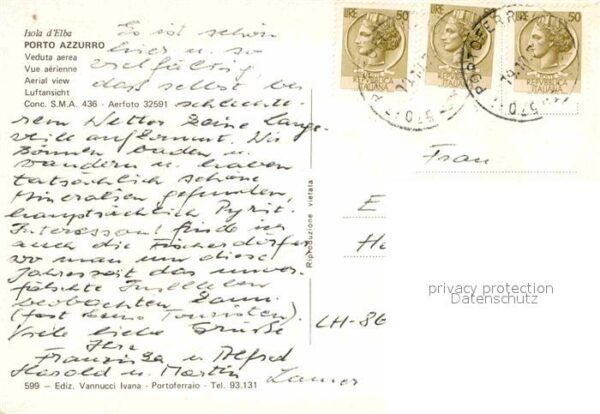 Isola d'Elba
PORTO AZZURRO
Veduta aerea
Vue aérienne
Aerial view
Luftansicht
Conc. S.M.A. 436 - Aerfoto 32591
Es ist schön
hier u. so
vielfältig,
das selbst bei
schlechte-
rem Wetter keine Lange-
weile aufkommt. Wir
können baden u.
wandern u. haben
tatsächlich schöne
Mineralien gefunden,
hauptsächlich Pyrit.
Interessant finde ich
auch die Fischerdörfer
wo man um diese
Jahreszeit das unver-
fälschte Inselleben
beobachten kann
(fast keine Touristen).
Viele liebe Grüße
Ihre
Franziska u. Alfred
Harald u. Martin
599 - Ediz. Vannucci Ivana - Portoferraio - Tel. 93.131
Riproduzione vietata
LIRE 50
REPUBBLICA
ITALIANA
LIRE
REPUBBLICA
ITALIANA
LIRE 50
REPUBBLICA
ITALIANA
PORTOFERR
Frau
E
Ha
LH-86
privacy protection
Datenschutz